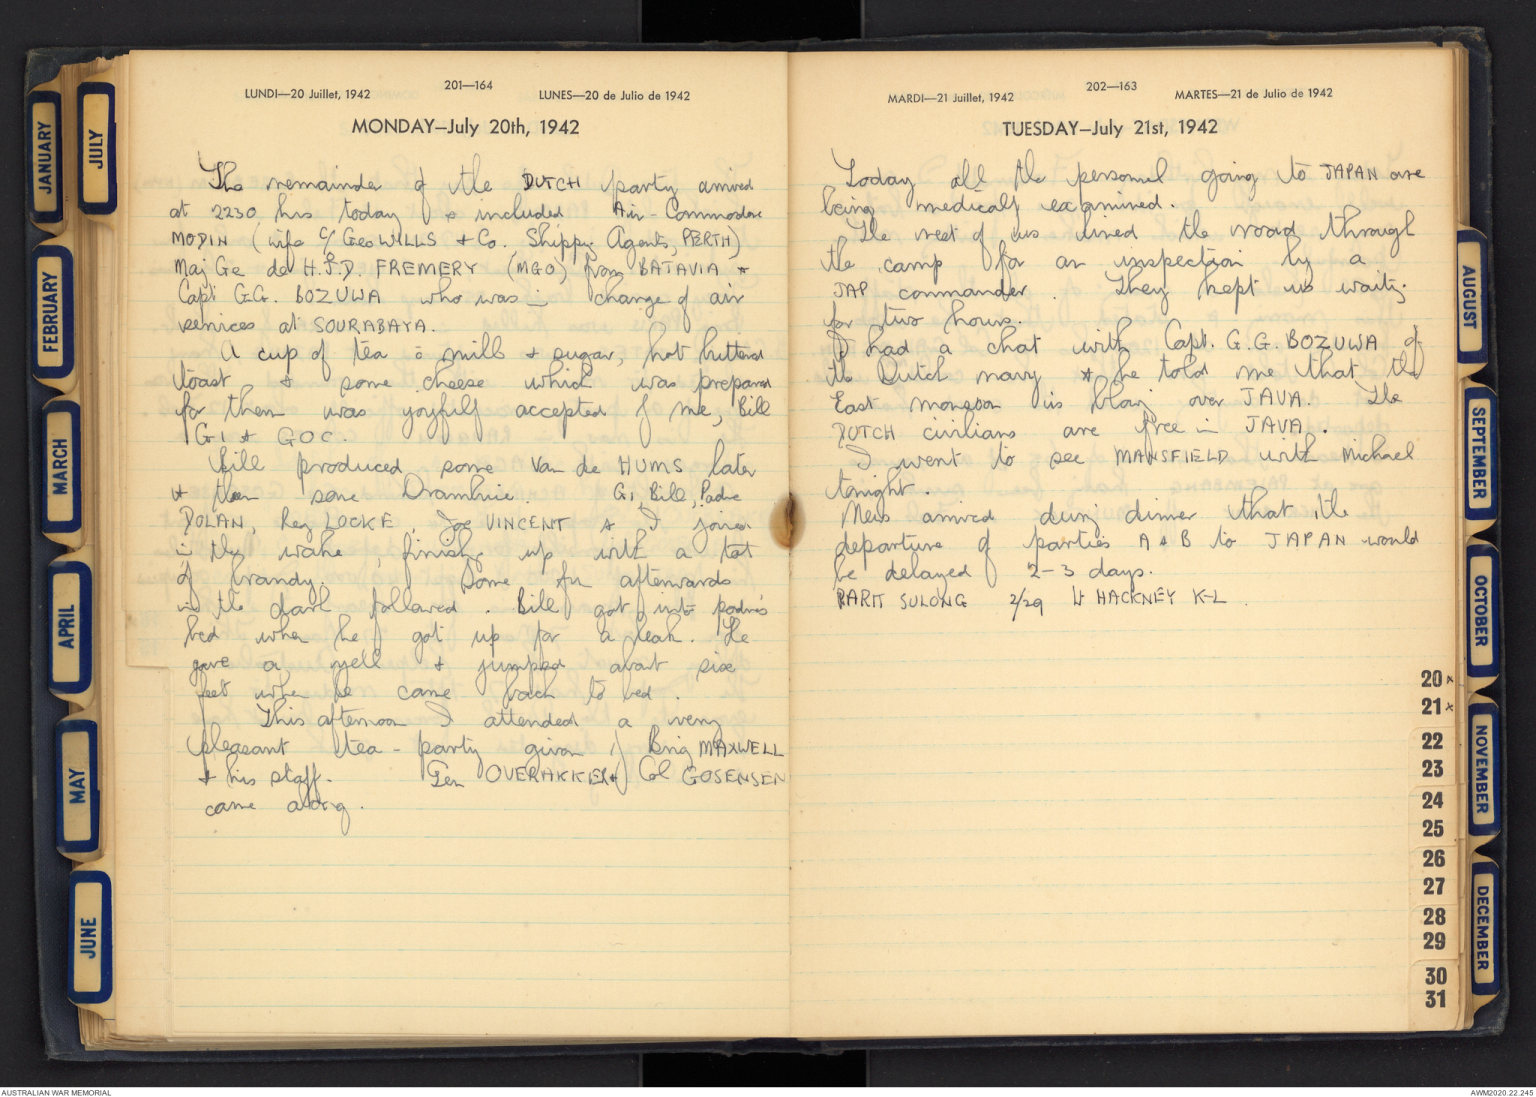 LUNDI—20 Juillet, 1942
201—164
LUNES—20 de Julio de 1942
MONDAY—July 20th, 1942
The remainder of the DUTCH party arrived
at 2230 hrs today & included Air-Commodore
MODIN (wife c/ Geo WILLS & Co. Shippg Agents, PERTH)
Maj Ge de H.J.D. FREMERY (MGO) from BATAVIA &
Capt G.G. BOZUWA who was in charge of air
services at SOURABAYA.
A cup of tea c̄ milk & sugar, hot buttered
toast & some cheese which was prepared
for them was joyfully accepted by me, Bill
G1 & GOC.
Bill produced some Van de HUMS later
& then some Drambuie. G1, Bill, Padre
DOLAN, Reg LOCKE, Joe VINCENT & I joined
in the wake, finishg up with a tot
of brandy. Some fun afterwards
in the dark followed. Bill got into padre's
bed when he got up for a leak. He
gave a yell & jumped about six
feet when he came back to bed.
This afternoon I attended a very
pleasant tea-party given by Brig MAXWELL
& his staff. Gen OVERAKKER & Col GOSENSEN
came along.
MARDI—21 Juillet, 1942
202—163
MARTES—21 de Julio de 1942
TUESDAY—July 21st, 1942
Today all the personnel going to JAPAN are
being medically examined.
The rest of us lined the road through
the camp for an inspection by a
JAP commander. They kept us waitg
for two hours.
I had a chat with Capt. G.G. BOZUWA of
the Dutch navy & he told me that the
East monsoon is blowg over JAVA. The
DUTCH civilians are free in JAVA.
I went to see MANSFIELD with Michael
tonight.
News arrived durig dinner that the
departure of parties A & B to JAPAN would
be delayed 2-3 days.
PARIT SULONG 2/29 Lt HACKNEY K-L
JANUARY
FEBRUARY
MARCH
APRIL
MAY
JUNE
JULY
AUGUST
SEPTEMBER
OCTOBER
NOVEMBER
DECEMBER
20
21
22
23
24
25
26
27
28
29
30
31
AUSTRALIAN WAR MEMORIAL
AWM2020.22.245